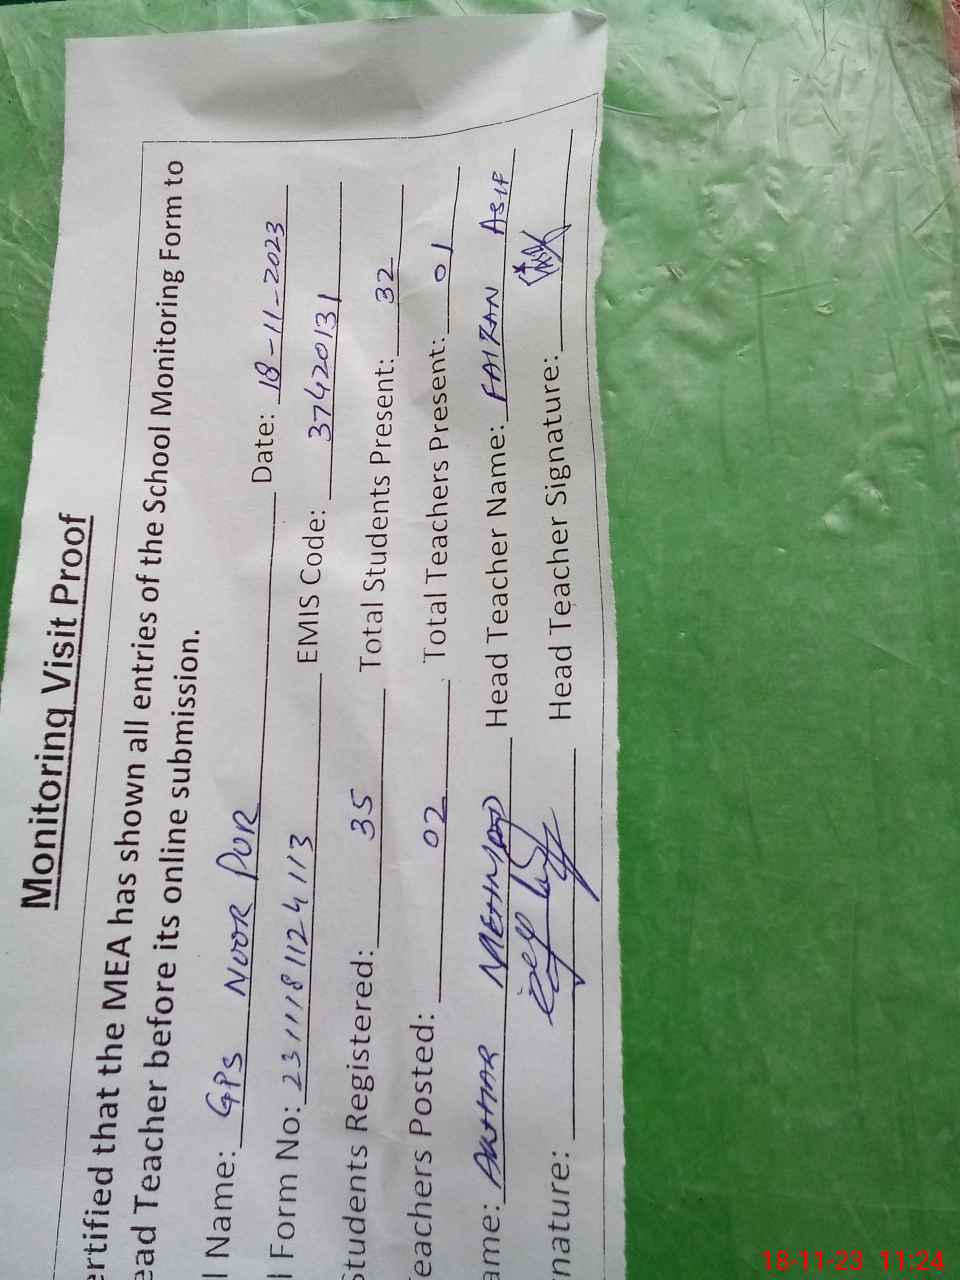 Monitoring Visit Proof
ertified that the MEA has shown all entries of the School Monitoring Form to
ead Teacher before its online submission.
l Name: GPS NOOR PUR Date: 18-11-2023
l Form No: 2311181124113 EMIS Code: 37420131
Students Registered: 35 Total Students Present: 32
eachers Posted: 02 Total Teachers Present: 01
ame: MEHMOOD Head Teacher Name: FAIZAN ASIF
nature: Head Teacher Signature:
18-11-23 11:24